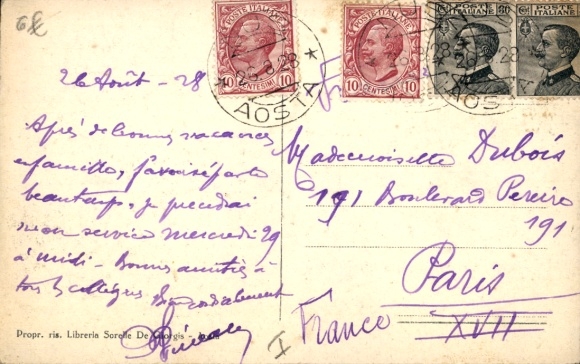 6
26 Août - 28
Après de bonnes vacances
en famille,
beau temps, je prendrai
mon service mercredi 29
à midi - Bonnes amitiés à
tous les collègues Bien cordialement
Propr. ris. Libreria Sorelle De Giorgis
POSTE ITALIANE
10 CENTESIMI 10
POSTE ITALIANE
10 CENTESIMI 10
POSTE ITALIANE
30
POSTE ITALIANE
26.8.28
AOSTA
AOSTA
Mademoiselle Dubois
191 Boulevard Pereire
191
Paris
XVII
I France